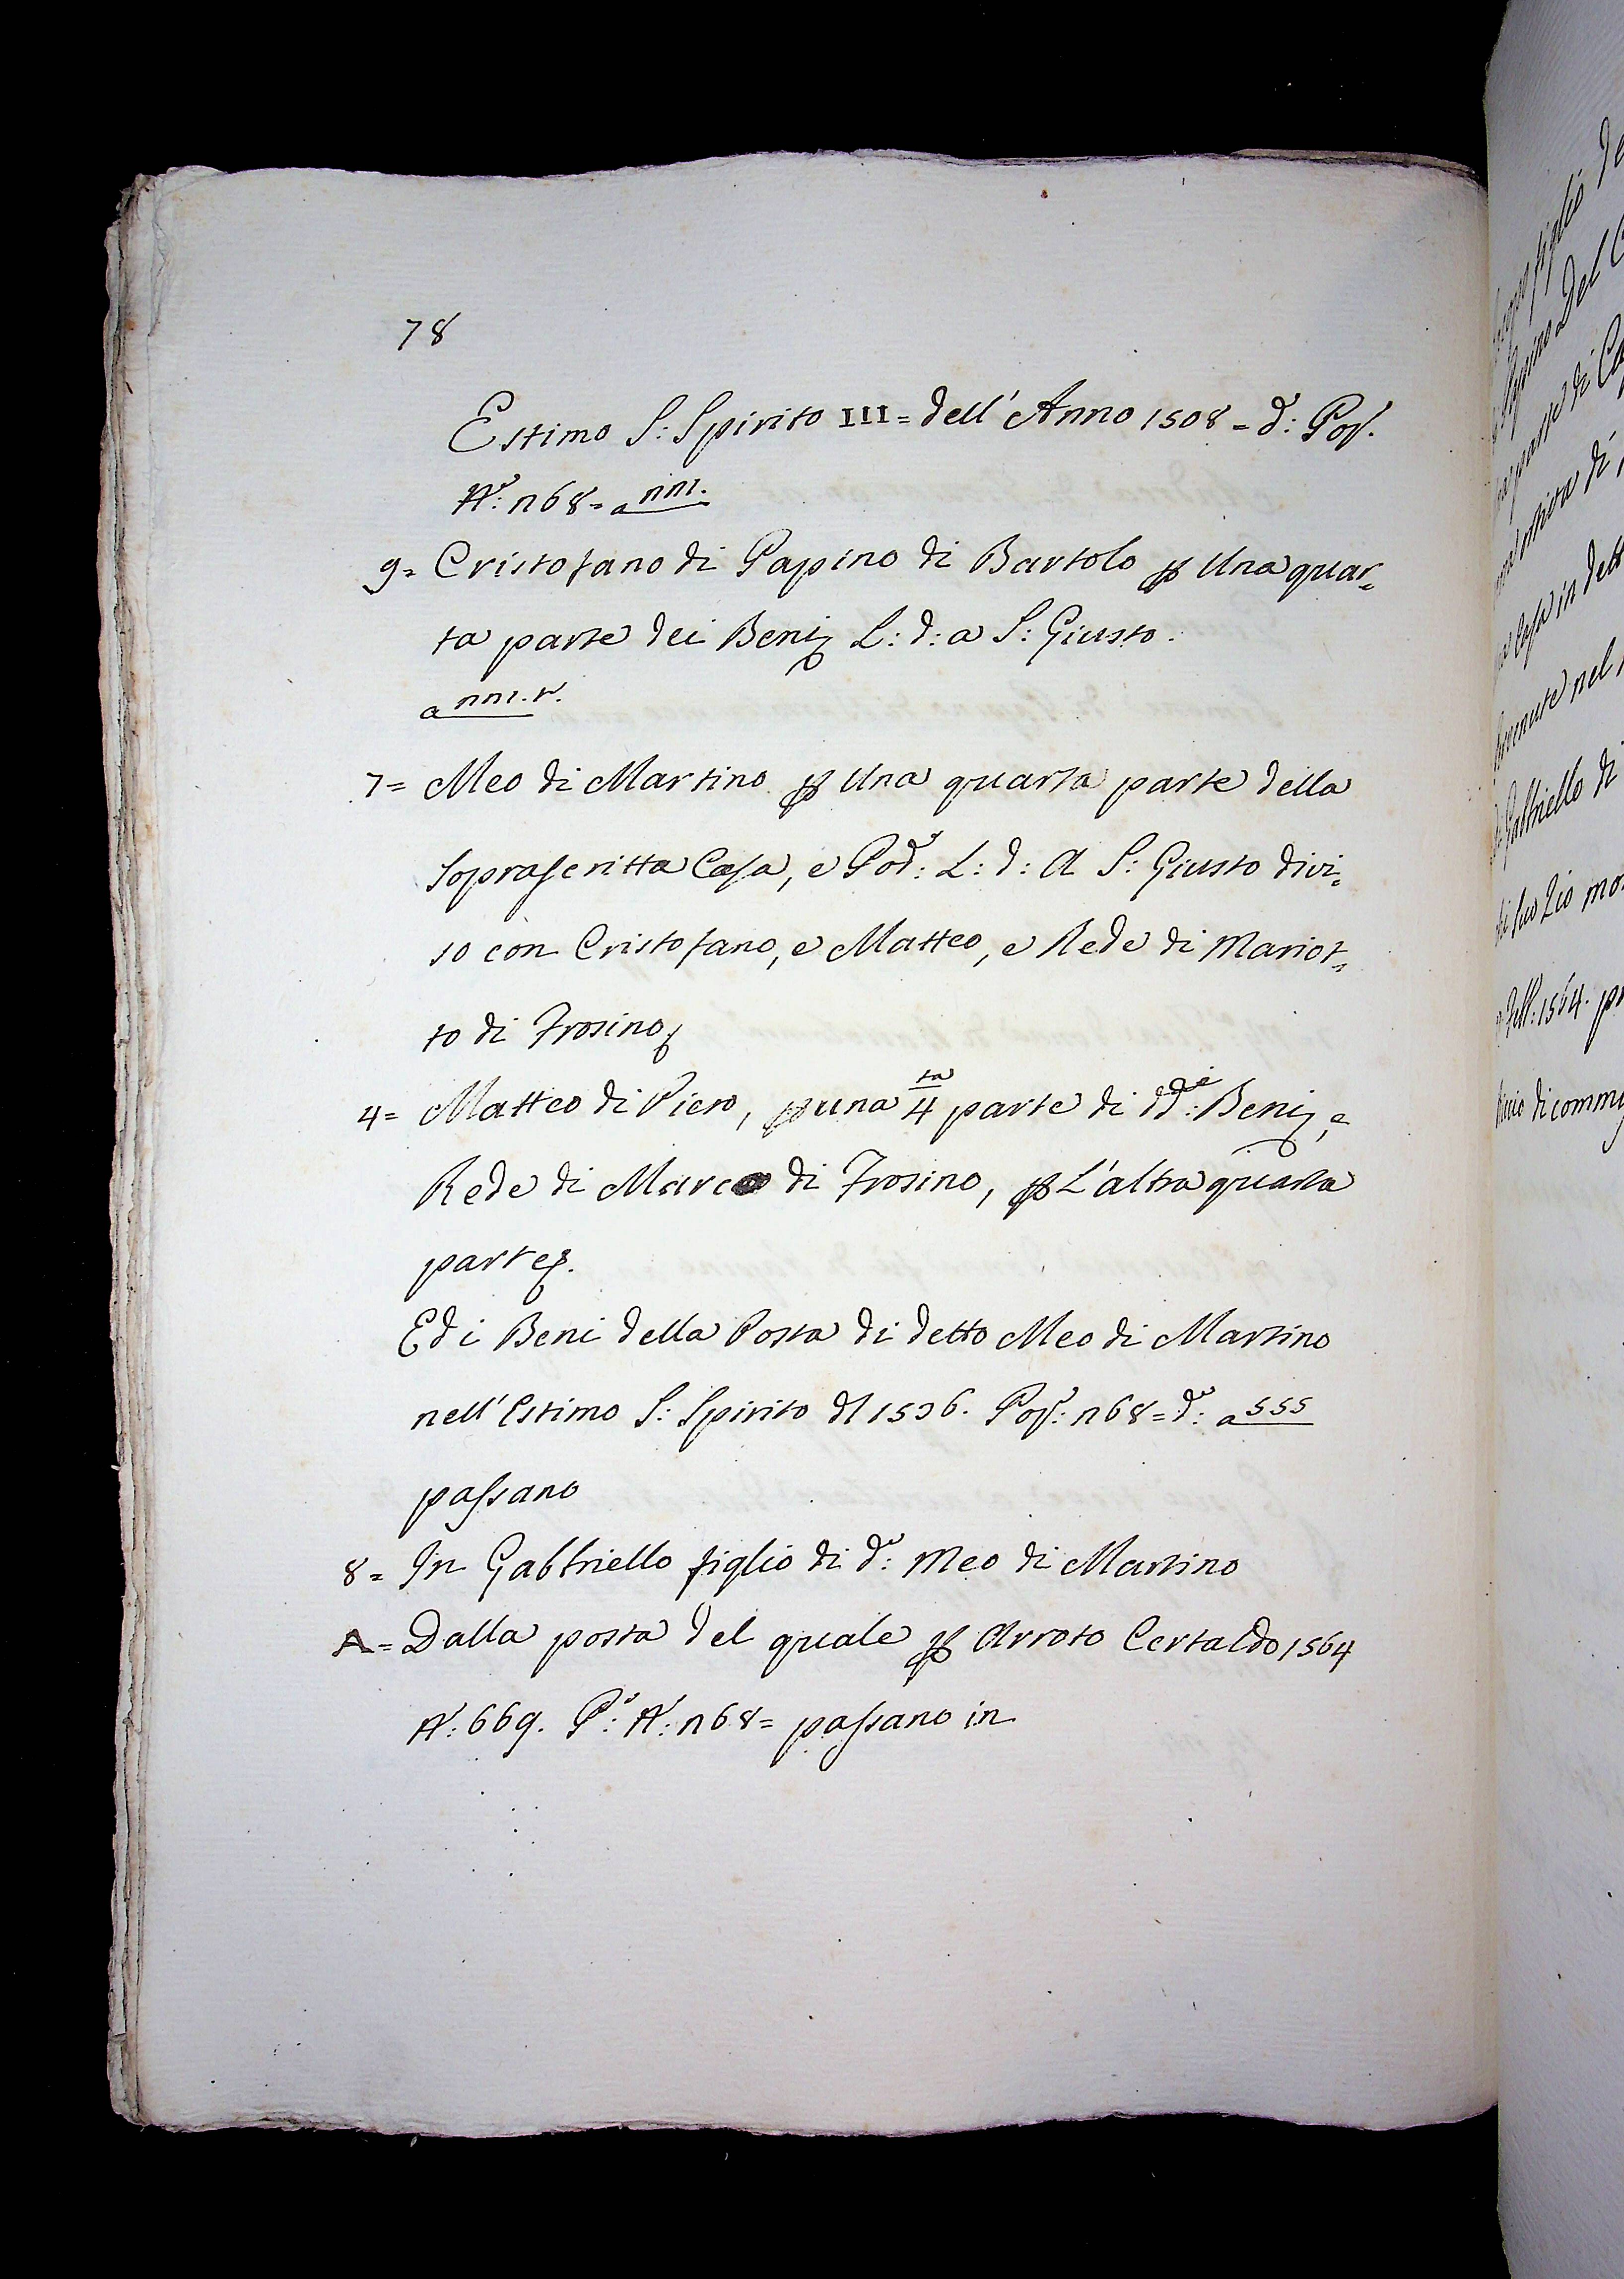 78
Estimo S: Spirito III= dell' Anno 1508 = d:° Pop.
N:° n68= a nm.
9= Cristofano di Papino di Bartolo p Una quar=
ta parte dei Beni L: d: a S: Giusto.
a nm. r.
7= Meo di Martino p Una quarta parte della
Soprascritta Casa, e Pod:° L: d: A S: Giusto divi=
so con Cristofano, e Matteo, e Rede di Mariot=
to di Frosino
4= Matteo di Piero, p una 4 ta parte di dd:i Beni, e
Rede di Marco di Frosino, p L'altra quarta
parte.
Ed i Beni della Posta di detto Meo di Martino
nell'Estimo S: Spirito dl 1536. Pop:° n68= d:° a 555
passano
8= In Gabbriello figlio di d:° Meo di Martino
A= Dalla posta del quale p Arroto Certaldo 1564
N:° 669. P:° N:° n68= passano in